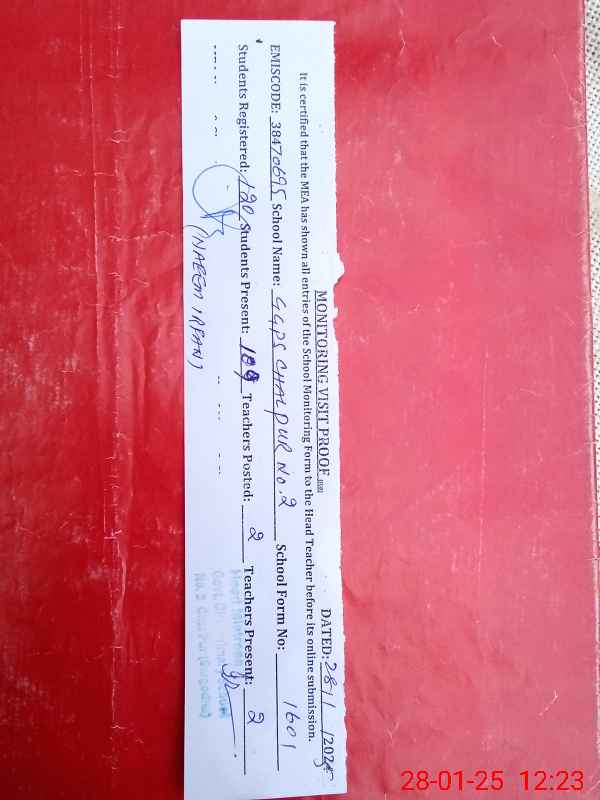 MONITORING VISIT PROOF DATED: 28/1/2025
It is certified that the MEA has shown all entries of the School Monitoring Form to the Head Teacher before its online submission.
EMISCODE: 38470695 School Name: GGPS CHALPUR No.2 School Form No: 1601
Students Registered: 120 Students Present: 109 Teachers Posted: 2 Teachers Present: 2
(NAEEM IRFAN)
28-01-25 12:23